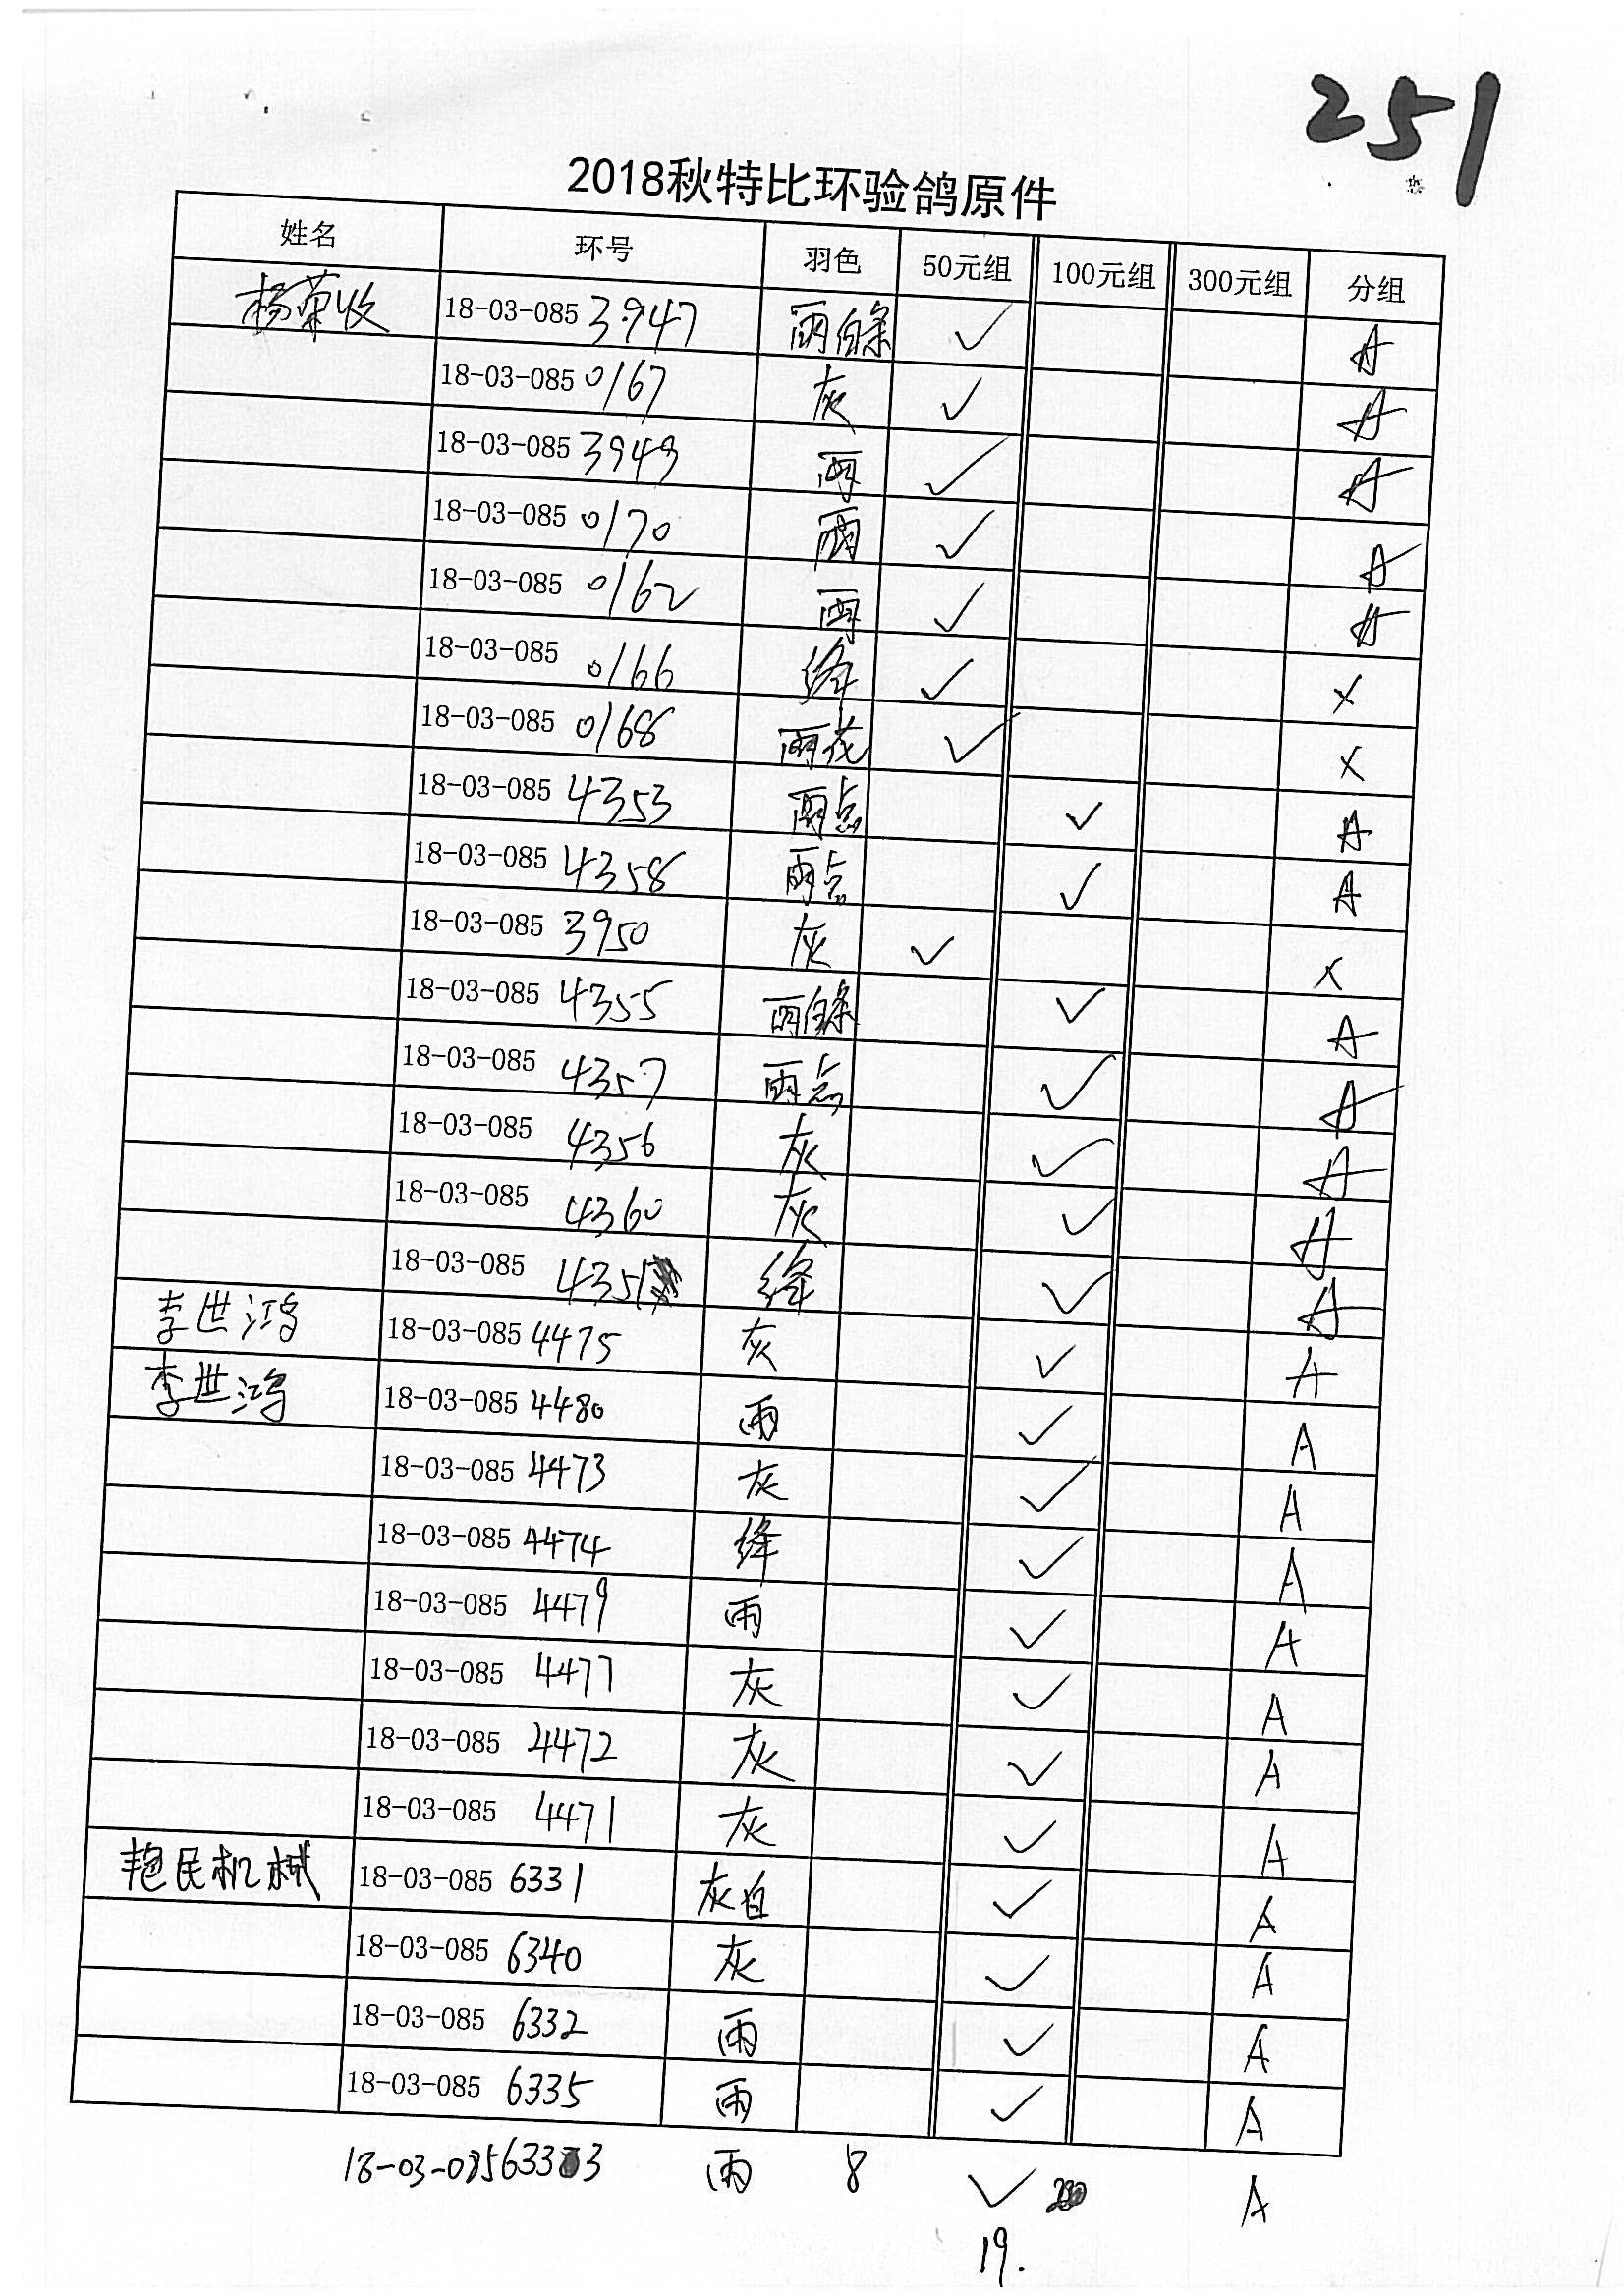 251
2018秋特比环验鸽原件
姓名 环号 羽色 50元组 100元组 300元组 分组
杨荣收 18-03-085 3947 雨白条 ✓ A
18-03-085 0167 灰 ✓ A
18-03-085 3949 雨 ✓ A
18-03-085 0170 雨 ✓ A
18-03-085 0162 雨 ✓ A
18-03-085 0166 绛 ✓ X
18-03-085 0168 雨花 ✓ X
18-03-085 4353 雨点 ✓ A
18-03-085 4358 雨点 ✓ A
18-03-085 3950 灰 ✓ X
18-03-085 4355 雨白条 ✓ A
18-03-085 4357 雨点 ✓ A
18-03-085 4356 灰 ✓ A
18-03-085 4360 灰 ✓ A
18-03-085 4351 绛 ✓ A
李世鸿 18-03-085 4475 灰 ✓ A
李世鸿 18-03-085 4480 雨 ✓ A
18-03-085 4473 灰 ✓ A
18-03-085 4474 绛 ✓ A
18-03-085 4479 雨 ✓ A
18-03-085 4477 灰 ✓ A
18-03-085 4472 灰 ✓ A
18-03-085 4471 灰 ✓ A
艳民机械 18-03-085 6331 灰白 ✓ A
18-03-085 6340 灰 ✓ A
18-03-085 6332 雨 ✓ A
18-03-085 6335 雨 ✓ A
18-03-0856333 雨 8 ✓ A
19.